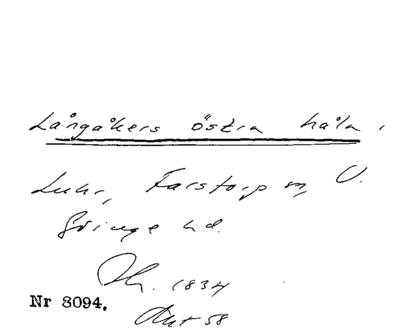 Långåkers östra håla.
Luhr, Farstorp sn, V.
Göinge hd.
1834
Nr 8094. Akt 58